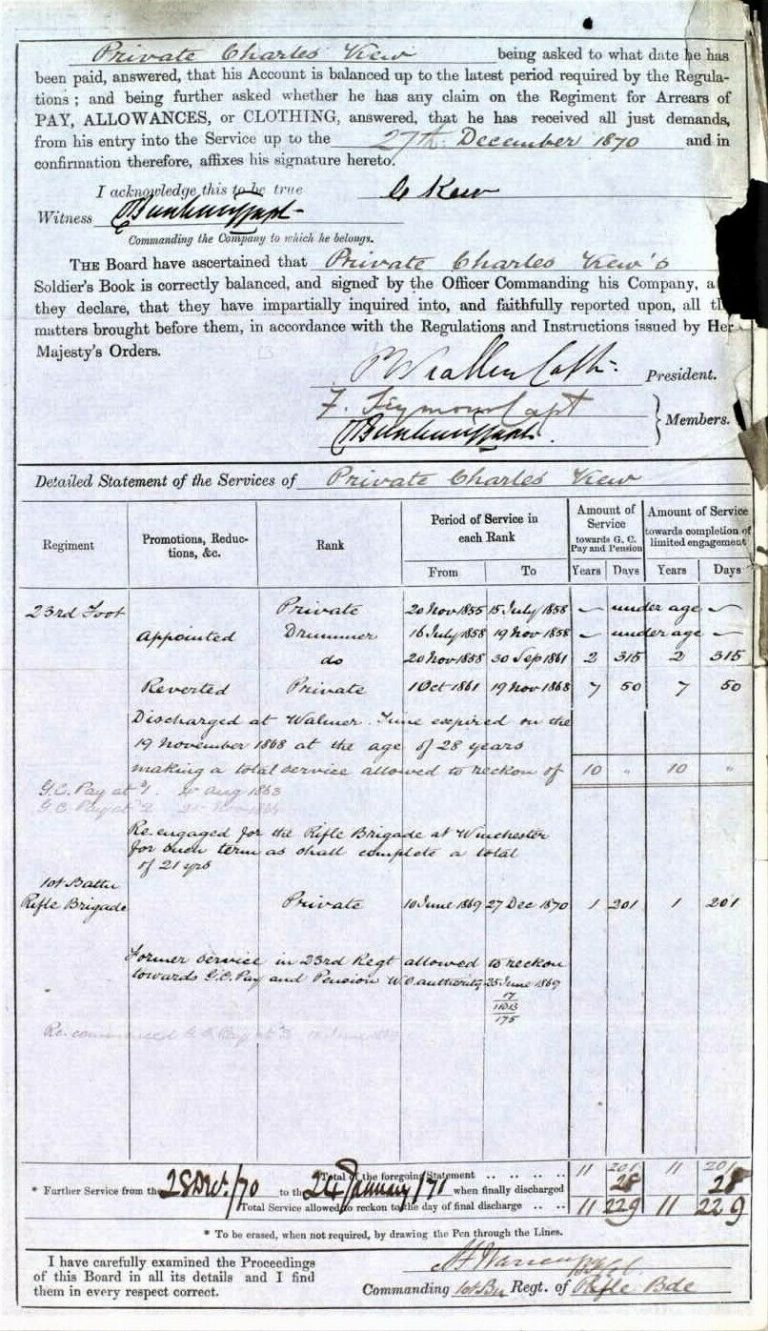 Private Charles Kew being asked to what date he has
been paid, answered, that his Account is balanced up to the latest period required by the Regula-
tions; and being further asked whether he has any claim on the Regiment for Arrears of
PAY, ALLOWANCES, or CLOTHING, answered, that he has received all just demands,
from his entry into the Service up to the 27th December 1870 and in
confirmation therefore, affixes his signature hereto.
I acknowledge this to be true C Kew
Witness
Commanding the Company to which he belongs.
THE Board have ascertained that Private Charles Kew's
Soldier's Book is correctly balanced, and signed by the Officer Commanding his Company, a
they declare, that they have impartially inquired into, and faithfully reported upon, all th
matters brought before them, in accordance with the Regulations and Instructions issued by Her
Majesty's Orders.
President.
F. Seymour Capt
Members.
Detailed Statement of the Services of Private Charles Kew
Regiment Promotions, Reduc-tions, &c. Rank Period of Service in each Rank Amount of Service towards G. C. Pay and Pension Amount of Service towards completion of limited engagement
From To Years Days Years Days
23rd Foot Private 20 Nov 1855 15 July 1858 ~ under age ~ ~ under age ~
Appointed Drummer 16 July 1858 19 Nov 1858 ~ under age ~
do 20 Nov 1858 30 Sep 1861 2 315 2 315
Reverted Private 1 Oct 1861 19 Nov 1868 7 50 7 50
Discharged at Walmer. Time expired on the
19 November 1868 at the age of 28 years
making a total service allowed to reckon of 10 " 10 "
G.C. Pay at 1. Aug 1863
G.C. Pay at 2
Re-engaged for the Rifle Brigade at Winchester
for such term as shall complete a total
of 21 yrs
1st Battn
Rifle Brigade Private 10 June 1869 27 Dec 1870 1 201 1 201
Former service in 23rd Regt allowed to reckon
towards G.C. Pay and Pension W.O. authority 25 June 1869
17
175
Re-commenced G.C. Pay at June 1869
Total of the foregoing Statement .. .. .. .. 11 201 11 201
* Further Service from the 28 Dec./70 to the 24 January/71 when finally discharged 28 28
Total Service allowed to reckon to the day of final discharge .. .. 11 229 11 229
* To be erased, when not required, by drawing the Pen through the Lines.
I have carefully examined the Proceedings
of this Board in all its details and I find
them in every respect correct.
Commanding 1st Bn Regt. of Rifle Bde